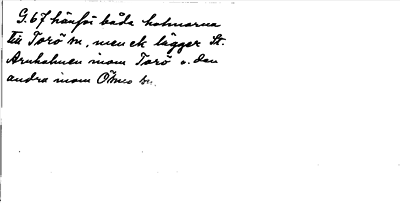 G. 67 hänför båda holmarna
till Torö sn, men ek lägger St.
Arnholmen inom Torö o. den
andra inom Ösmo sn.